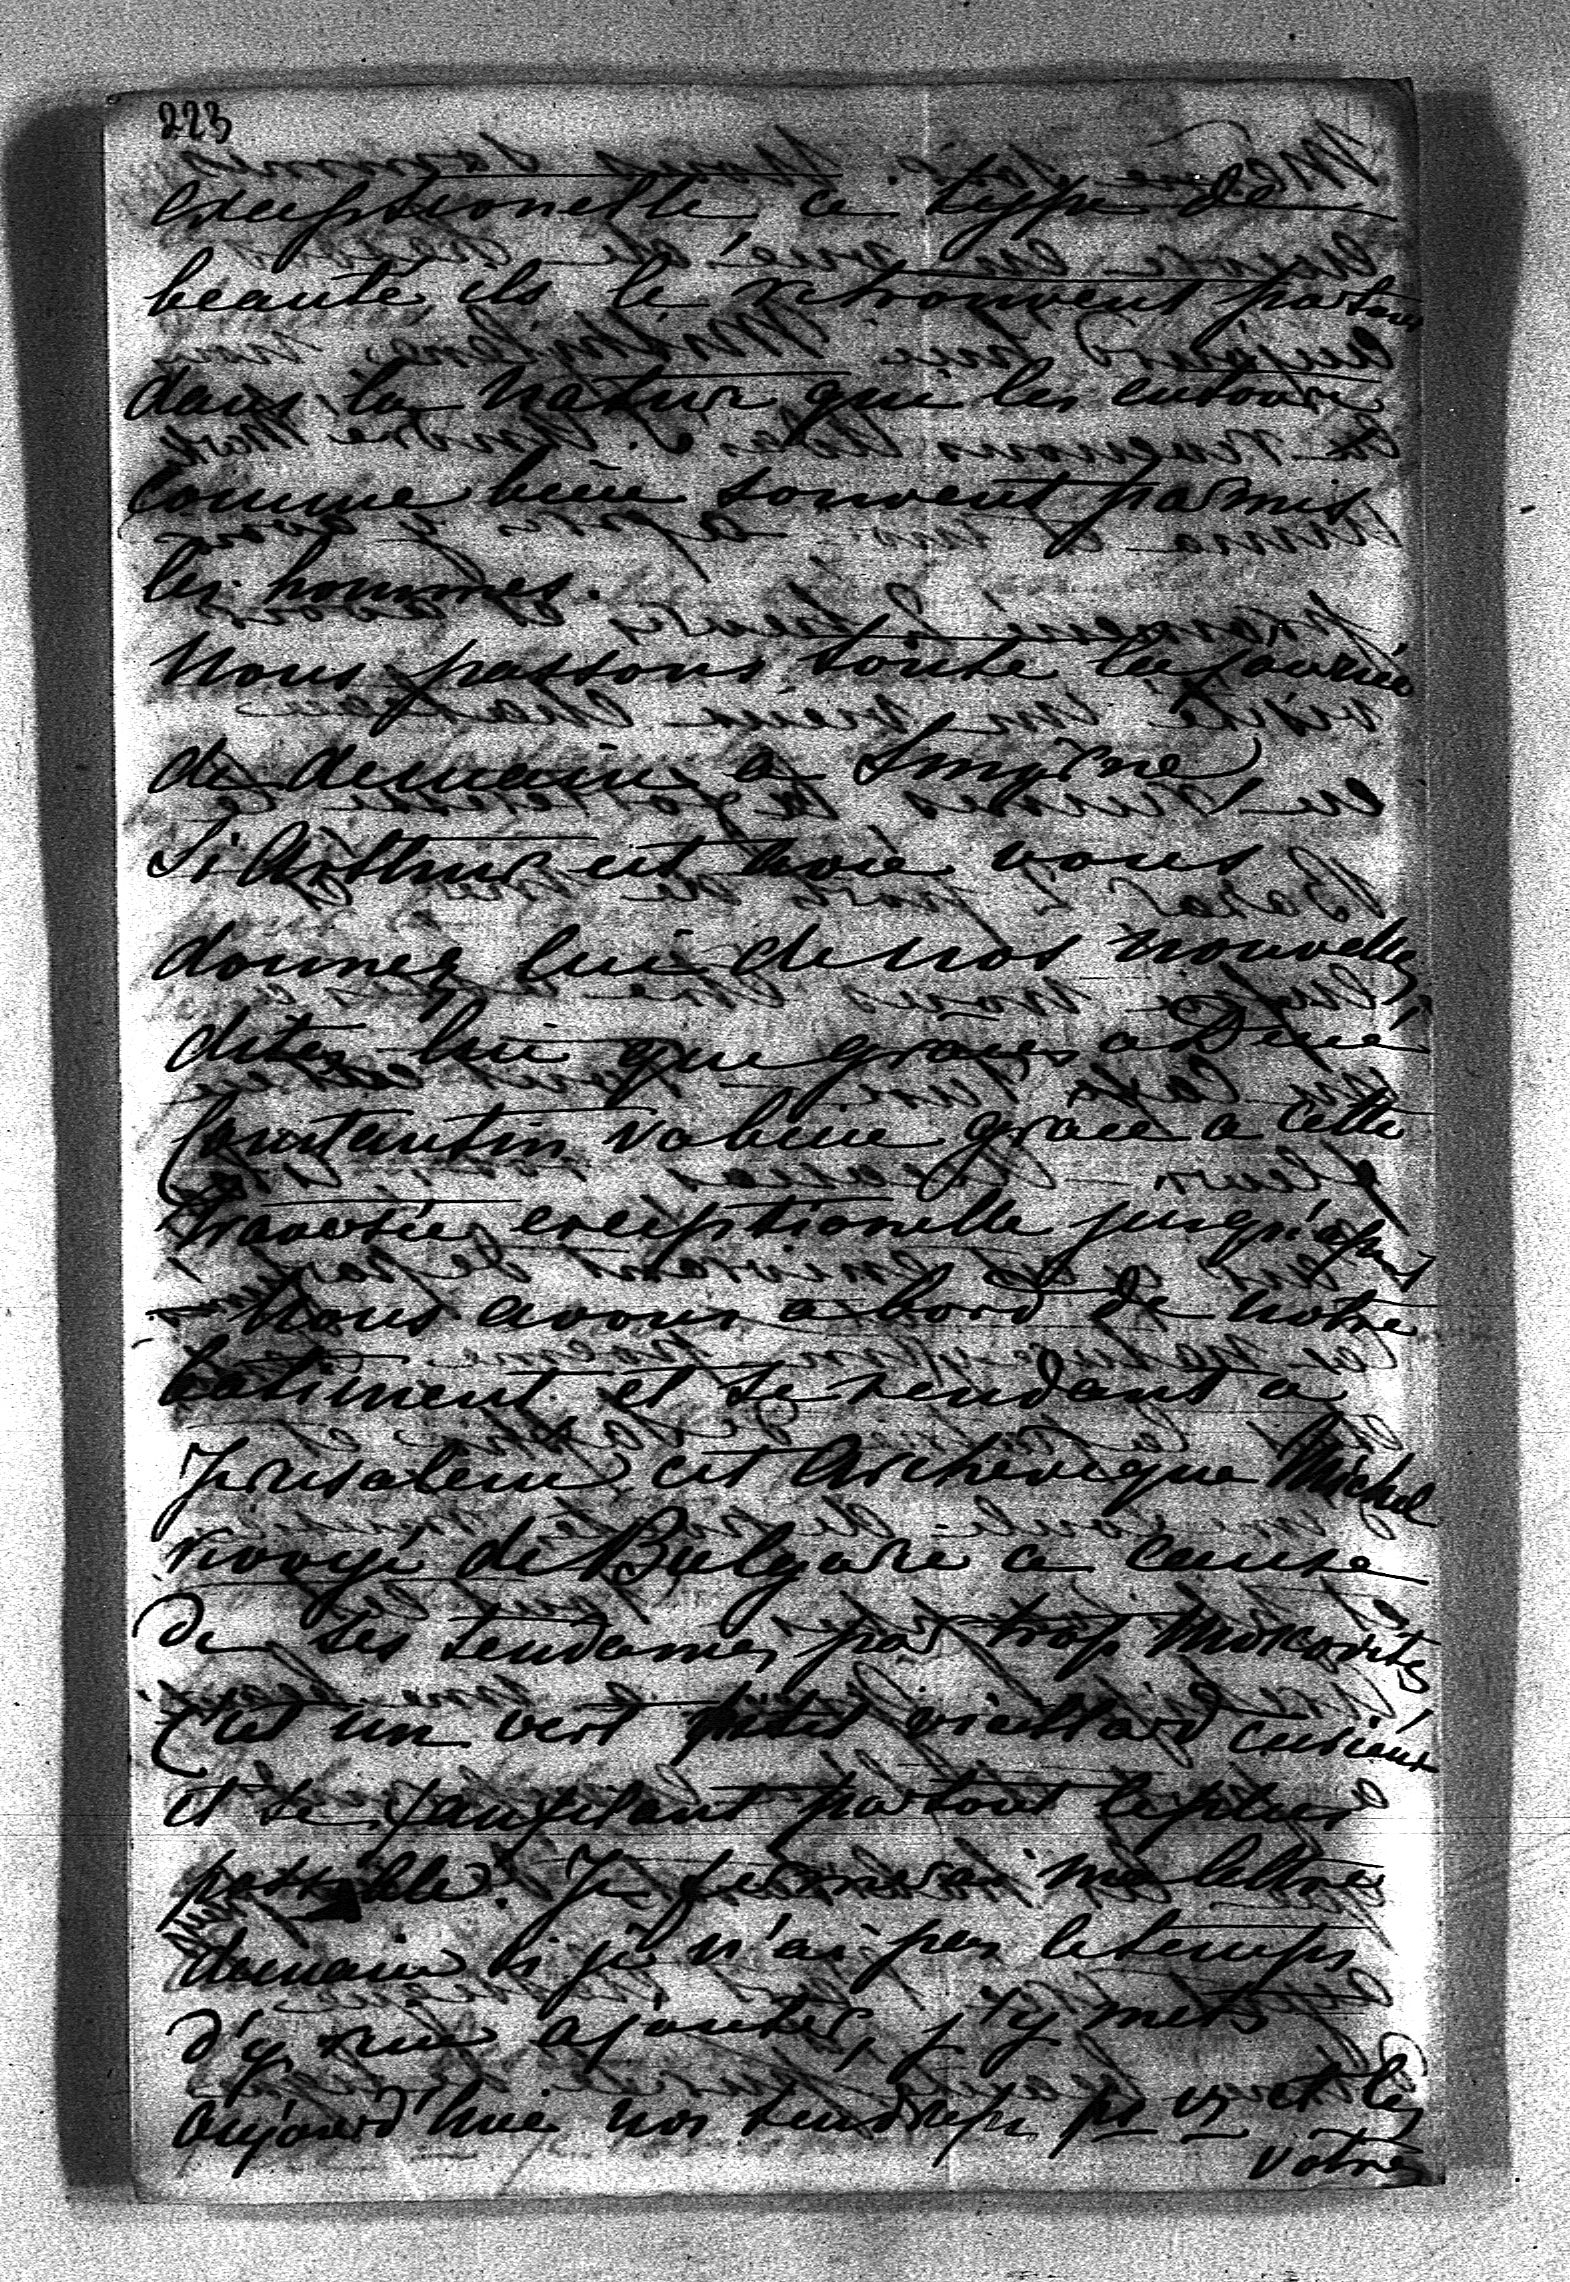 223
exceptionelle ce type de
beauté ils le retrouvent partout
dans la nature qui les entoure
comme bien souvent parmis
les hommes.
Nous passons toute la journée
de demain a Smyrne
Si Arthur est avec vous
donnez lui de nos nouvelles
dites lui que graces a Dieu
Constantin va bien grace a cette
traversée exceptionelle jusqu'a pres
Nous avons a bord de notre
batiment et se rendant a
Jerusalem cet Archeveque Michel
de Bulgarie a cause
De ses tendances par trop Moscovites
C'est un vert petit vieillard curieux
et se faufilant partout le plus
possible. Je fermerai ma lettre
demain si je n'ai pas le temps
d'y rien ajouter, j'y mets
aujourd'hui nos tendresses pr vs et les
votres